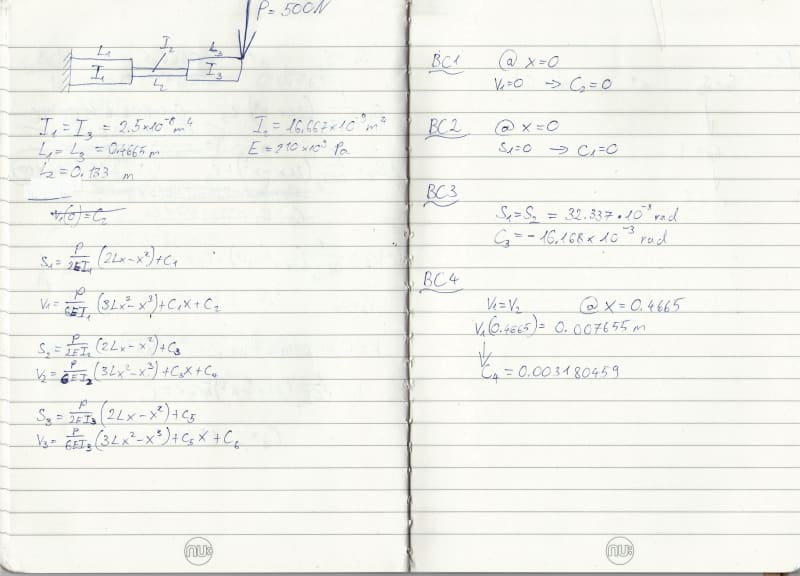 P=500N
L₁ I₂ L₃
I₁ L₂ I₃
I₁ = I₃ = 2.5×10⁻⁸ m⁴ I₂ = 16.667×10⁻⁹ m⁴
L₁ = L₃ = 0.4665 m E = 210×10⁹ Pa
L₂ = 0.133 m
V₁(0) = C₂
S₁ = P/2EI₁ (2Lx−x²)+C₁
V₁ = P/6EI₁ (3Lx²−x³)+C₁x+C₂
S₂ = P/2EI₂ (2Lx−x²)+C₃
V₂ = P/6EI₂ (3Lx²−x³)+C₃x+C₄
S₃ = P/2EI₃ (2Lx−x²)+C₅
V₃ = P/6EI₃ (3Lx²−x³)+C₅x+C₆
nu:
BC1 @ x=0
V₁=0 → C₂=0
BC2 @ x=0
S₁=0 → C₁=0
BC3
S₁=S₂ = 32.337·10⁻³ rad
C₃ = −16.168×10⁻³ rad
BC4
V₁=V₂ @ x=0.4665
V₁(0.4665) = 0.007655 m
↓
C₄ = 0.003180459
nu: